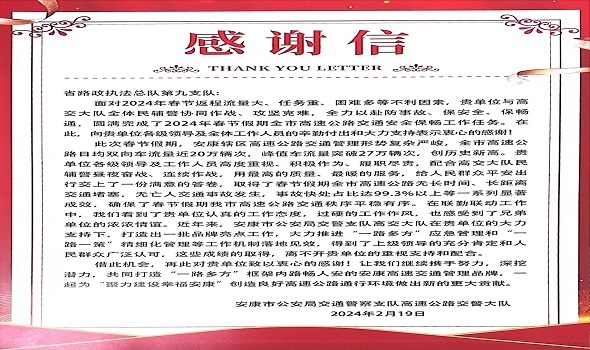 感谢信
THANK YOU LETTER
省路政执法总队第九支队:
面对2024年春节返程流量大、任务重、困难多等不利因素,贵单位与高
交大队全体民辅警协同作战、攻坚克难,全力以赴防事故、保安全、保畅
通,圆满完成了2024年春节假期全市高速公路交通安全保畅工作任务。在
此,向贵单位各级领导及全体工作人员的辛勤付出和大力支持表示衷心的感谢!
此次春节假期,安康辖区高速公路交通管理形势复杂严峻,全市高速公
路日均双向车流量近20万辆次,峰值车流量突破27万辆次,创历史新高。贵
单位各级领导及工作人员高度重视、积极作为、履职尽责,配合高交大队民
辅警昼夜奋战、连续作战,用最高的质量、最暖的服务,给人民群众平安出
行交上了一份满意的答卷,取得了春节假期全市高速公路无长时间、长距离
交通堵塞,无亡人交通事故发生,事故快处占比达99.3%以上等一系列显著
成效,确保了春节假期我市高速公路交通秩序平稳有序。在联勤联动工作
中,我们看到了贵单位认真的工作态度,过硬的工作作风,也感受到了兄弟
单位的浓浓情谊。近年来,安康市公安局交警支队高交大队在贵单位的大力
支持下,打造出一批品牌亮点工作,大力推进“一路多方”应急管理和“一
路一策”精细化管理等工作机制落地见效,得到了上级领导的充分肯定和人
民群众广泛认可,这些成绩的取得,离不开贵单位的重视支持和配合。
借此机会,再此对贵单位致以衷心的感谢!让我们继续携手努力,深挖
潜力,共同打造“一路多方”框架内路畅人安的安康高速交通管理品牌,一
起为“聚力建设幸福安康”创造良好高速公路通行环境做出新的更大贡献。
安康市公安局交通警察支队高速公路交警大队
2024年2月19日